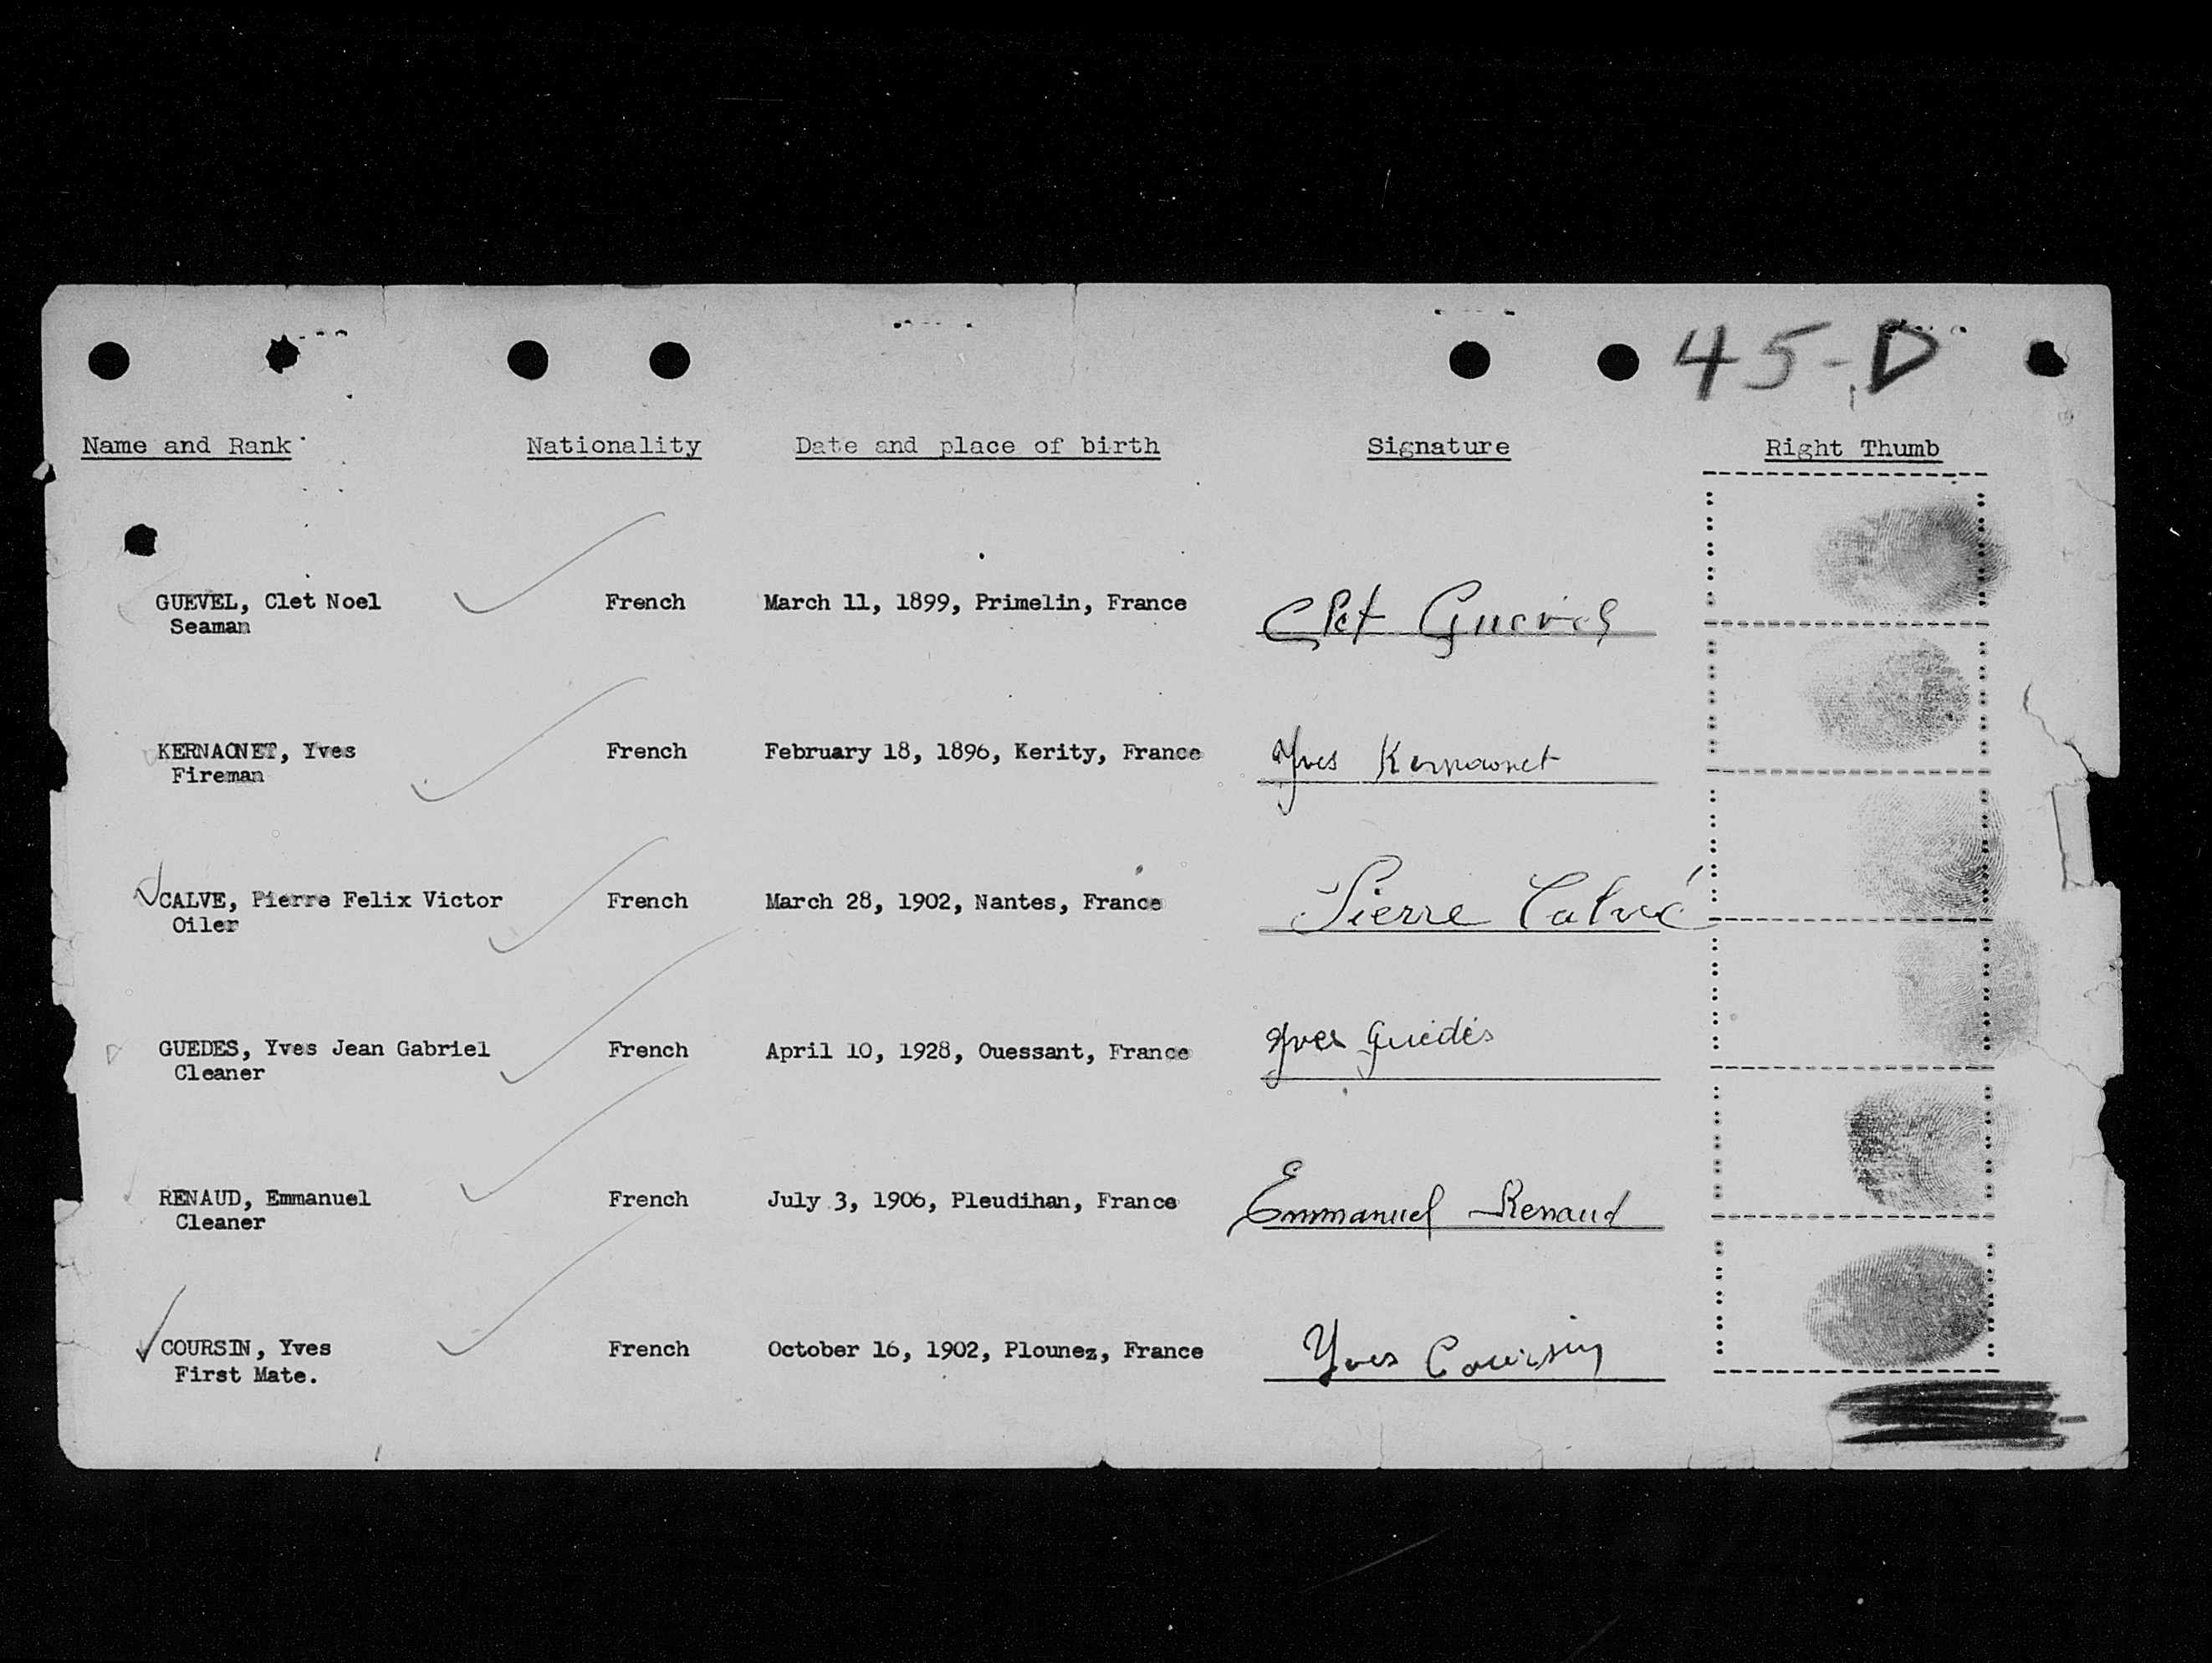 45-D
Name and Rank Nationality Date and place of birth Signature Right Thumb
GUEVEL, Clet Noel French March 11, 1899, Primelin, France Clet Guevel
Seaman
KERNAONET, Yves French February 18, 1896, Kerity, France Yves Kernaonet
Fireman
CALVE, Pierre Felix Victor French March 28, 1902, Nantes, France Pierre Calvé
Oiler
GUEDES, Yves Jean Gabriel French April 10, 1928, Ouessant, France Yves Guédès
Cleaner
RENAUD, Emmanuel French July 3, 1906, Pleudihan, France Emmanuel Renaud
Cleaner
COURSIN, Yves French October 16, 1902, Plounez, France Yves Coursin
First Mate.